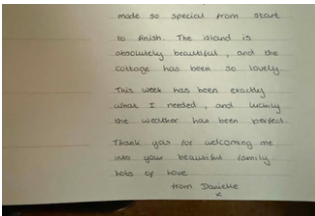 made so special from start
to finish. The island is
absolutely beautiful, and the
cottage has been so lovely
This week has been exactly
what I needed, and luckily
the weather has been perfect.
Thank you for welcoming me
into your beautiful family
lots of love
from Danielle
x